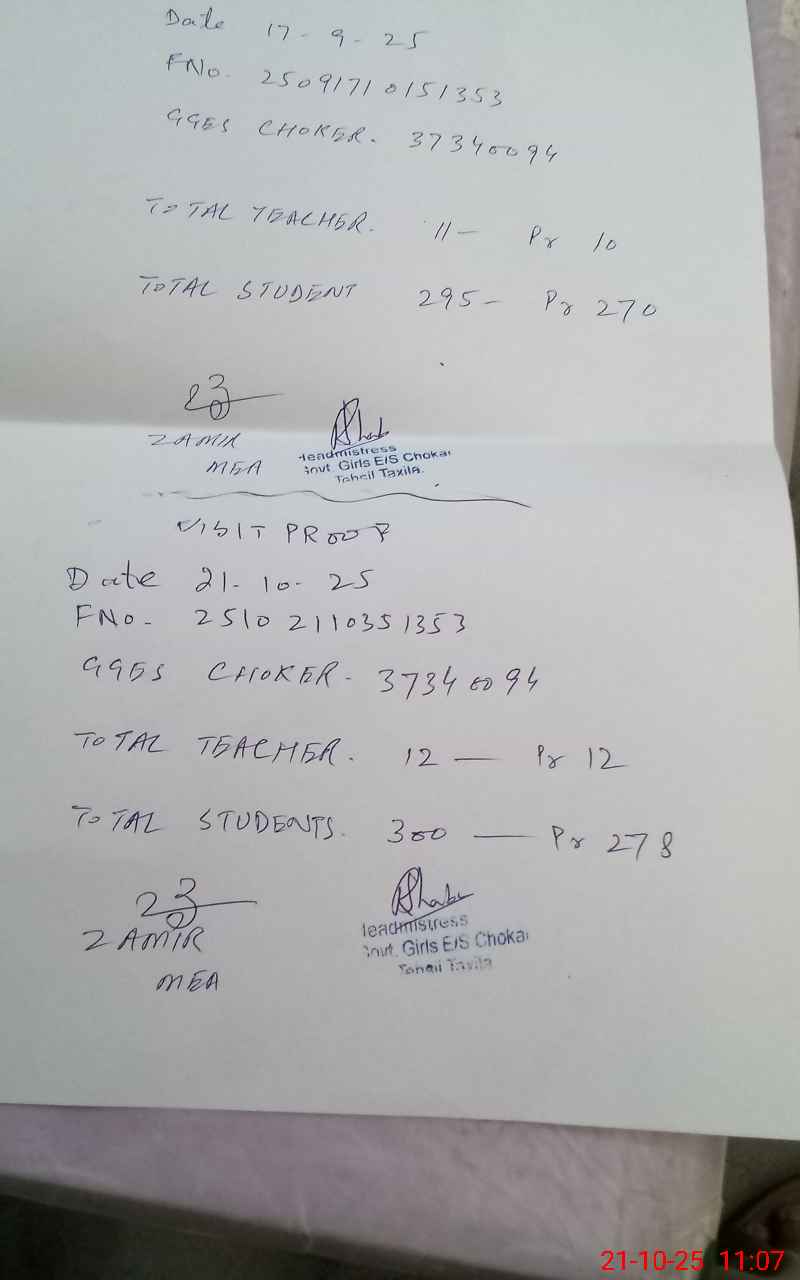 Date 17-9-25
FNo. 25091710151353
GGES CHOKER. 37340094
TOTAL TEACHER. 11— Pr 10
TOTAL STUDENT 295— Pr 270
ZAMIR
MEA
Headmistress
Govt. Girls E/S Chokar
Tehsil Taxila.
VISIT PROOF
Date 21-10-25
FNo- 25102110351353
GGES CHOKER- 37340094
TOTAL TEACHER. 12 — Pr 12
TOTAL STUDENTS. 300 — Pr 278
ZAMIR
MEA
Headmistress
Govt. Girls E/S Chokar
Tehsil Taxila
21-10-25 11:07